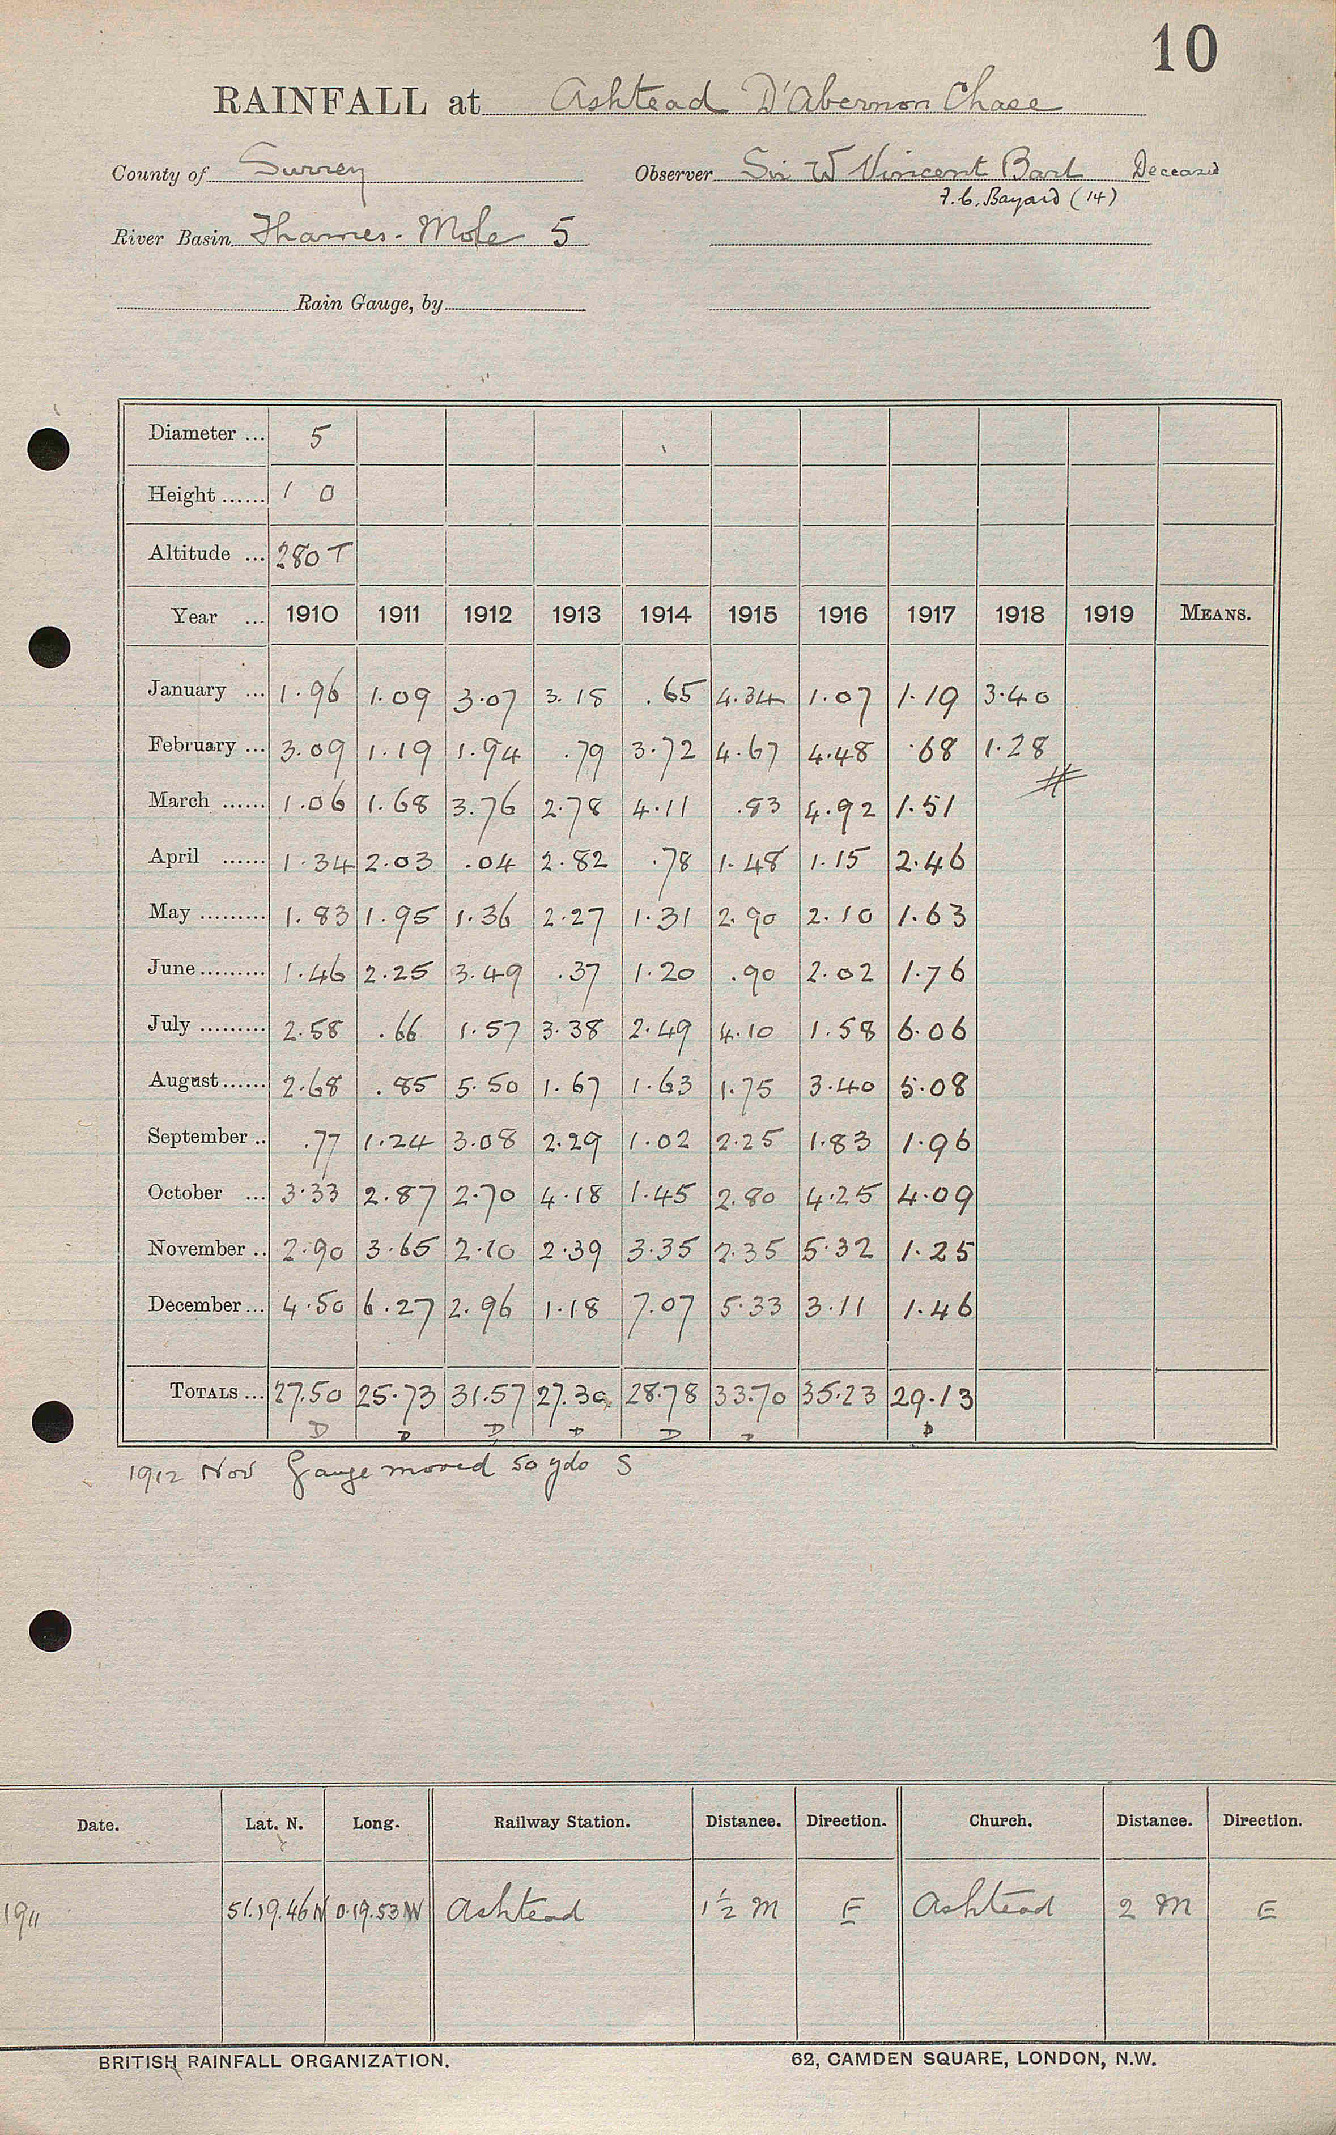 10
RAINFALL at Ashtead D'Abernon Chase
County of Surrey Observer Sir W Vincent Bart Deceased
F.C. Bayard (14)
River Basin Thames - Mole 5
Rain Gauge, by
Diameter ... 5
Height ...... 1 0
Altitude ... 280 T
Year ... 1910 1911 1912 1913 1914 1915 1916 1917 1918 1919 MEANS.
January ... 1.96 1.09 3.07 3.18 .65 4.34 1.07 1.19 3.40
February ... 3.09 1.19 1.94 .79 3.72 4.67 4.48 .68 1.28
March ...... 1.06 1.68 3.76 2.78 4.11 .83 4.92 1.51
April ...... 1.34 2.03 .04 2.82 .78 1.48 1.15 2.46
May ......... 1.83 1.95 1.36 2.27 1.31 2.90 2.10 1.63
June ......... 1.46 2.25 3.49 .37 1.20 .90 2.02 1.76
July ......... 2.58 .66 1.57 3.38 2.49 4.10 1.58 6.06
August ...... 2.68 .85 5.50 1.67 1.63 1.75 3.40 5.08
September .. .77 1.24 3.08 2.29 1.02 2.25 1.83 1.96
October ... 3.33 2.87 2.70 4.18 1.45 2.80 4.25 4.09
November .. 2.90 3.65 2.10 2.39 3.35 2.35 5.32 1.25
December ... 4.50 6.27 2.96 1.18 7.07 5.33 3.11 1.46
TOTALS ... 27.50 25.73 31.57 27.30 28.78 33.70 35.23 29.13
D D D D D D D
1912 Nov Gauge moved 50 yds S
Date. Lat. N. Long. Railway Station. Distance. Direction. Church. Distance. Direction.
1911 51.19.46 N 0.19.53 W Ashtead 1½ M E Ashtead 2 M E
BRITISH RAINFALL ORGANIZATION. 62, CAMDEN SQUARE, LONDON, N.W.